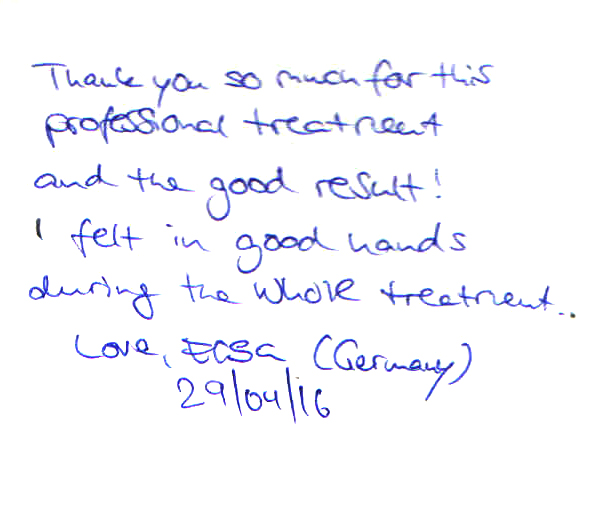 Thank you so much for this
professional treatment
and the good result!
I felt in good hands
during the whole treatment..
Love, (Germany)
29/04/16